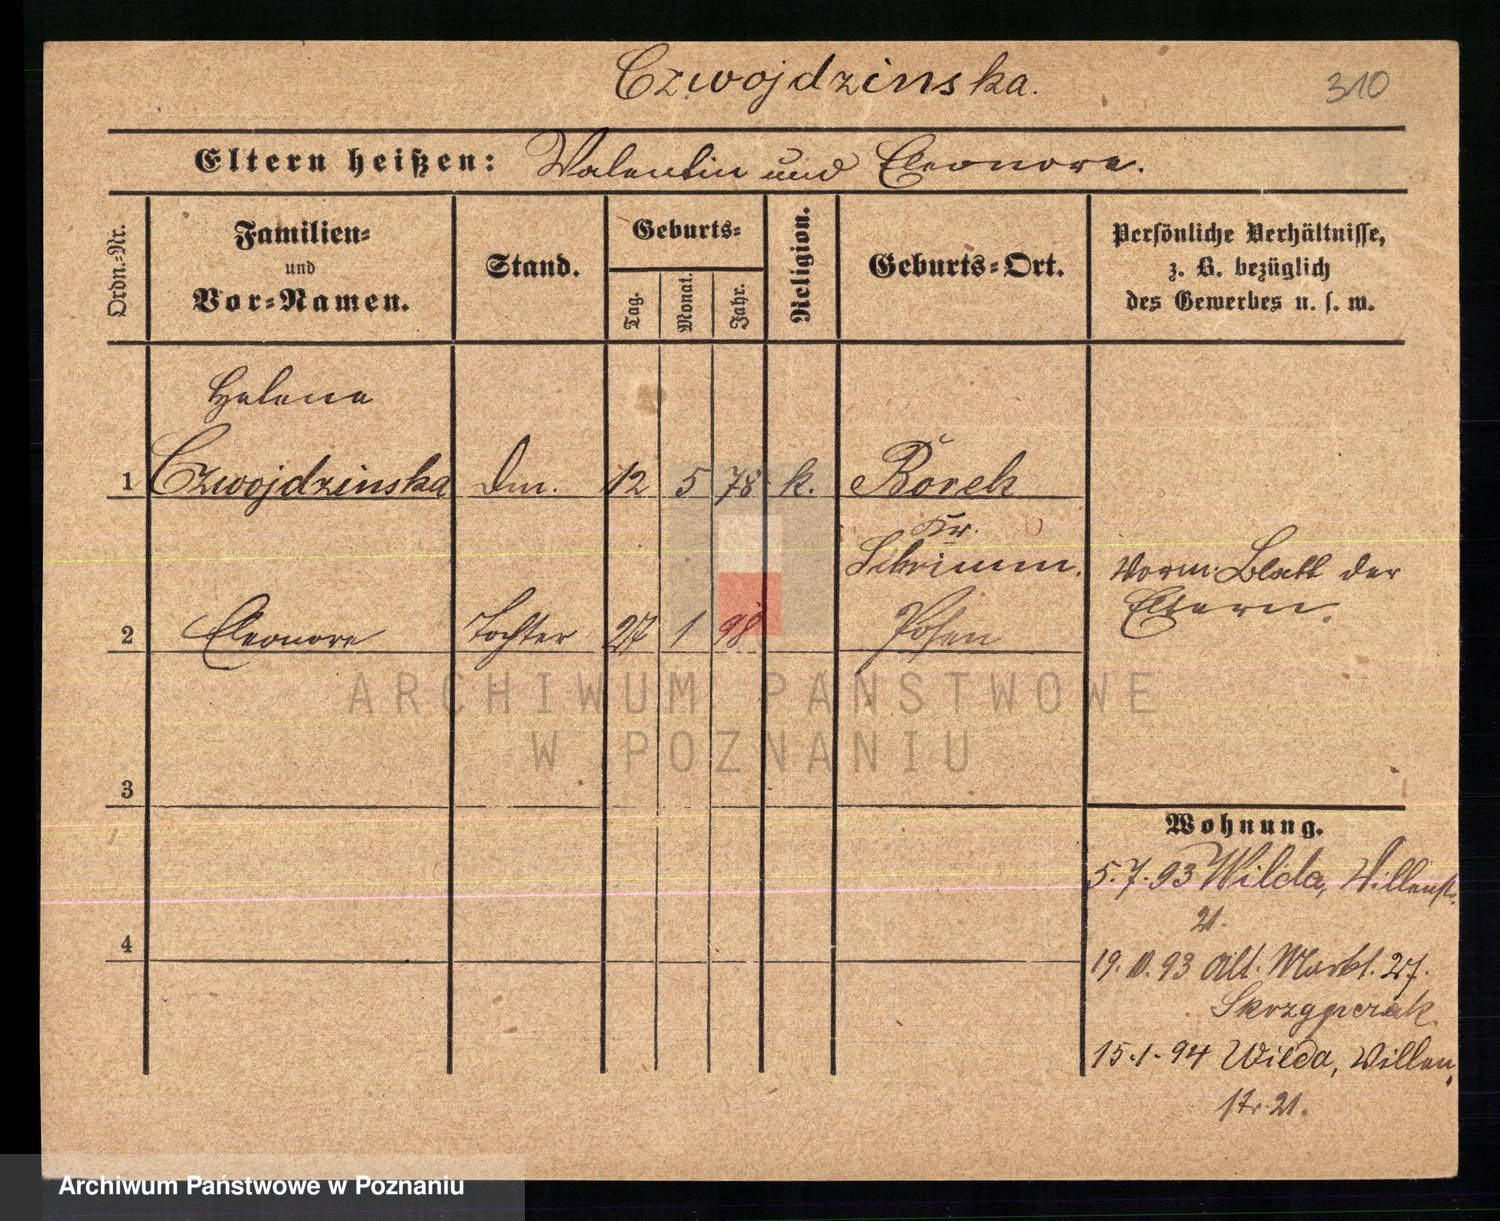 Czwojdzinska.
310
Eltern heißen: Valentin und Eleonore.
Ordn.-Nr.
Familien-
und
Vor-Namen.
Stand.
Geburts-
Tag.
Monat.
Jahr.
Religion.
Geburts-Ort.
Persönliche Verhältnisse,
z. B. bezüglich
des Gewerbes u. s. w.
Helene
1 Czwojdzinska Dm. 12 5 78 k. Borek
Kr.
Schrimm.
Vorm. Blatt der
Eltern.
2 Eleonore Tochter 27 1 98 Posen
ARCHIWUM PAŃSTWOWE
W POZNANIU
3
Wohnung.
5.7.93 Wilda, Villenst.
21.
4
19.10.93 Alt. Markt. 27.
Skrzypczak.
15.1.94 Wilda, Villen
str. 21.
Archiwum Państwowe w Poznaniu